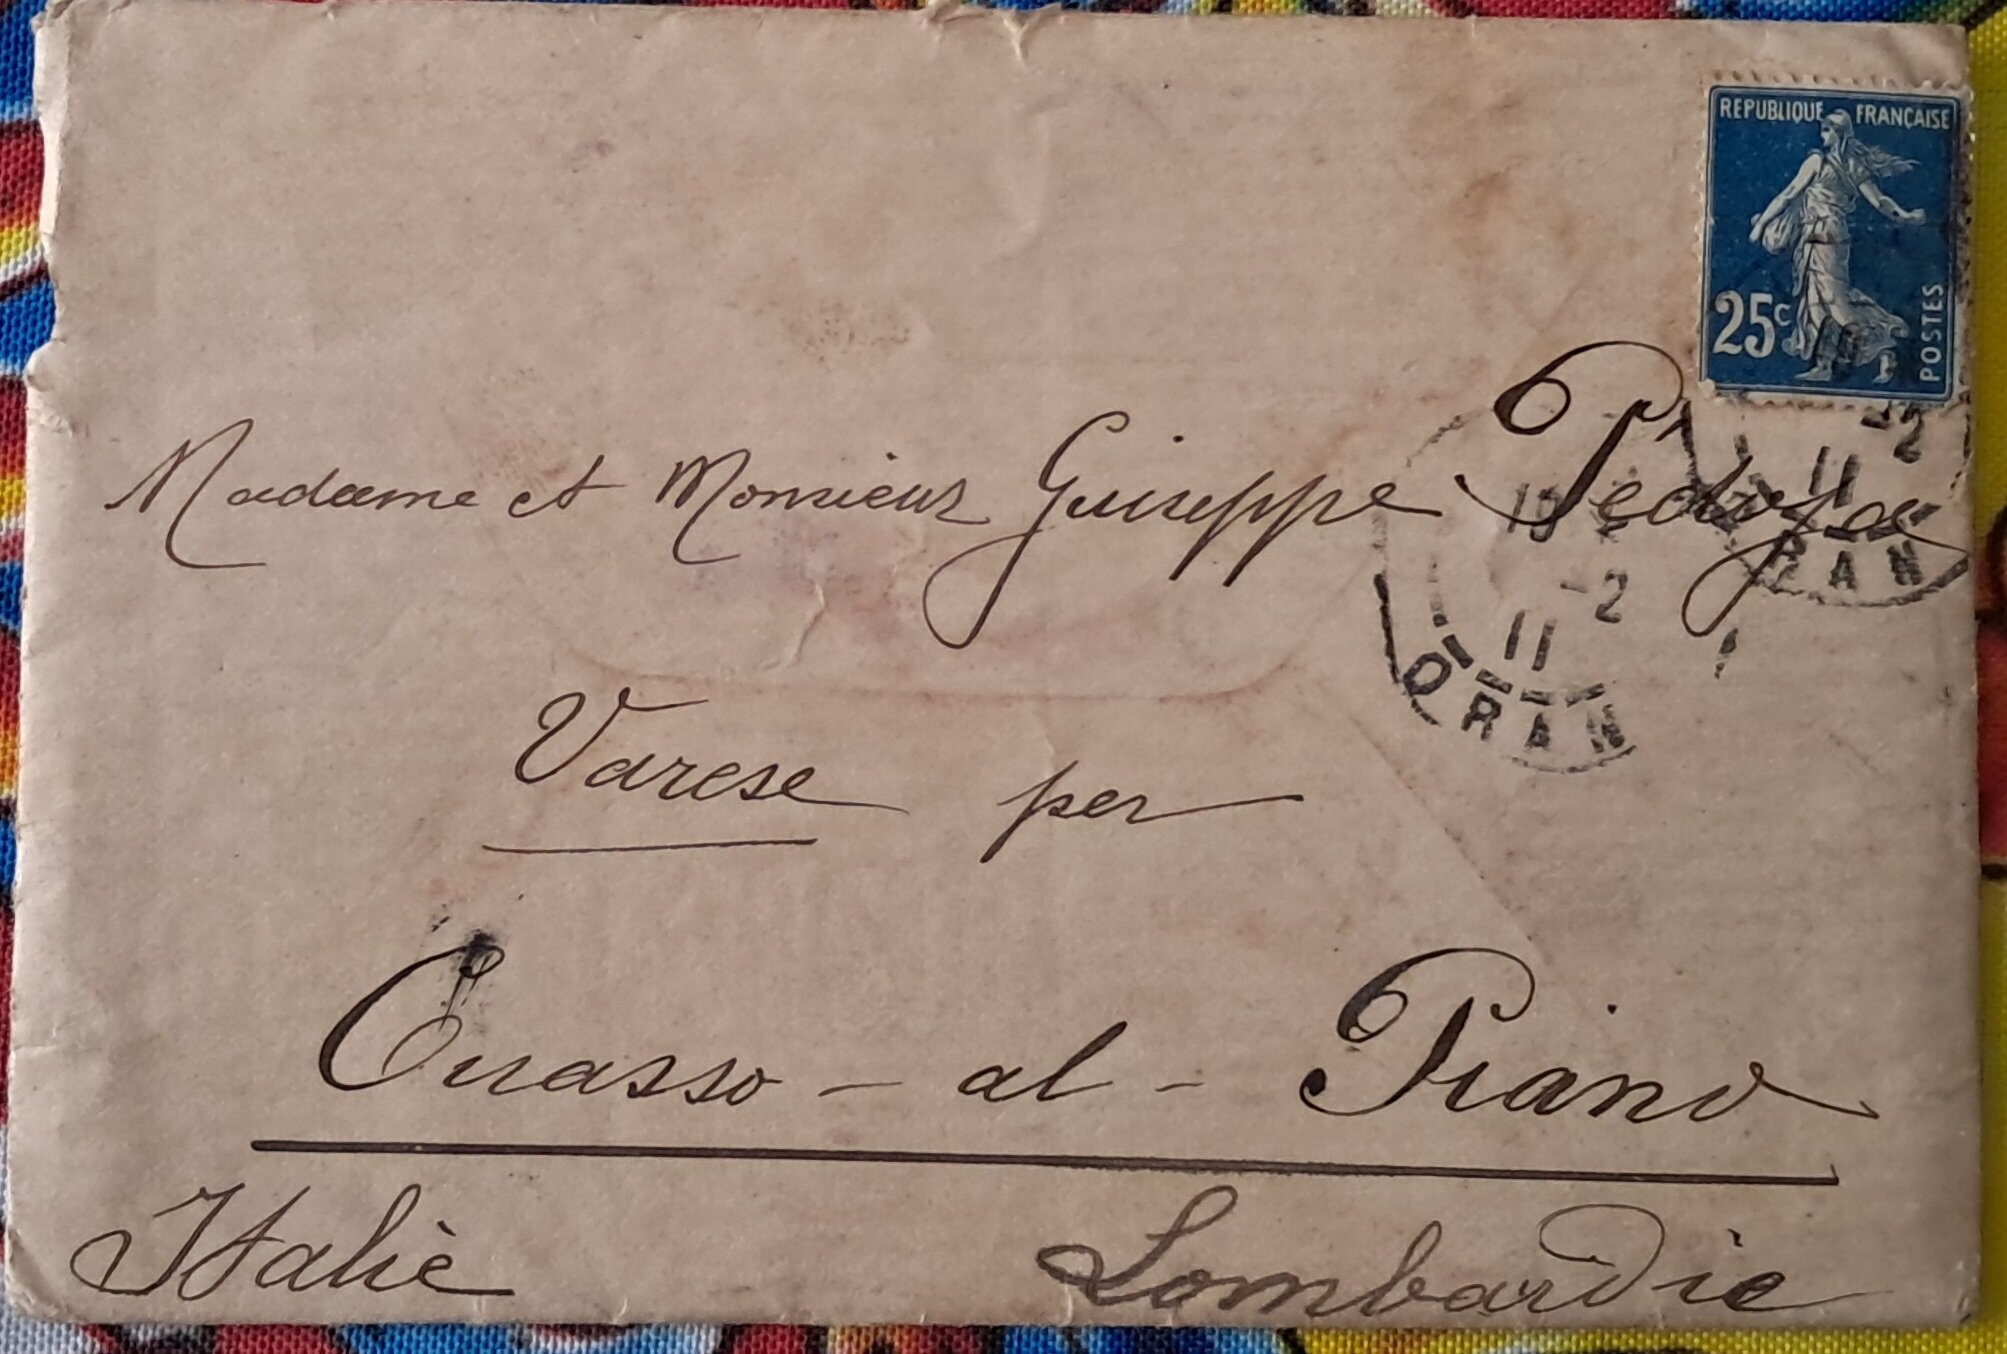 REPUBLIQUE FRANÇAISE
25c
POSTES
Madame et Monsieur Guiseppe
19 -2
11
ORAN
-2
11
RAN
Varese per
Cuasso - al - Piano
Italie Lombardie